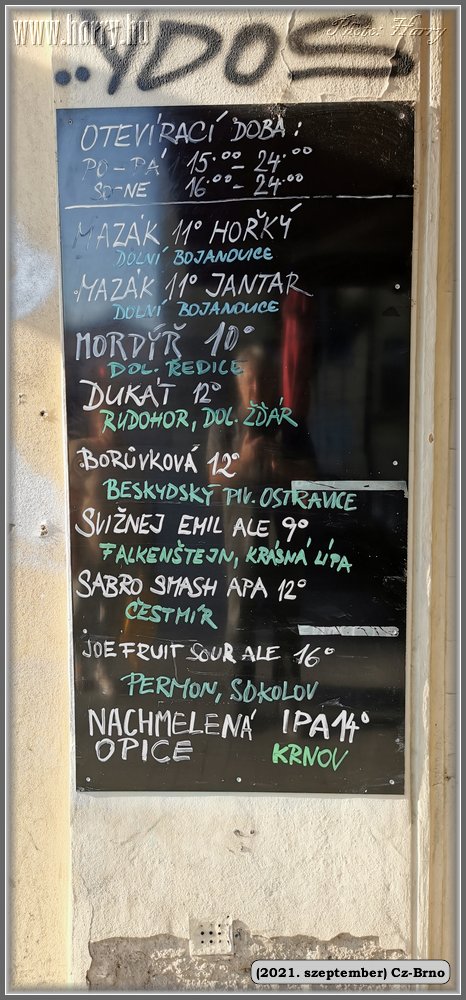 www.horry.hu
Photo: Harry
..YDOS
OTEVÍRACÍ DOBA:
PO-PÁ 15.00-24.00
SO-NE 16.00-24.00
MAZÁK 11° HOŘKÝ
DOLNÍ BOJANOVICE
MAZÁK 11° JANTAR
DOLNÍ BOJANOVICE
MORDÝŘ 10°
DOL. ŘEDICE
DUKÁT 12°
RUDOHOR, DOL. ŽĎÁR
BORŮVKOVÁ 12°
BESKYDSKÝ PIV. OSTRAVICE
SVIŽNEJ EMIL ALE 9°
FALKENŠTEJN, KRÁSNÁ LÍPA
SABRO SMASH APA 12°
ČESTMÍR
JOE FRUIT SOUR ALE 16°
PERMON, SOKOLOV
NACHMELENÁ IPA 14°
OPICE KRNOV
(2021. szeptember) Cz-Brno